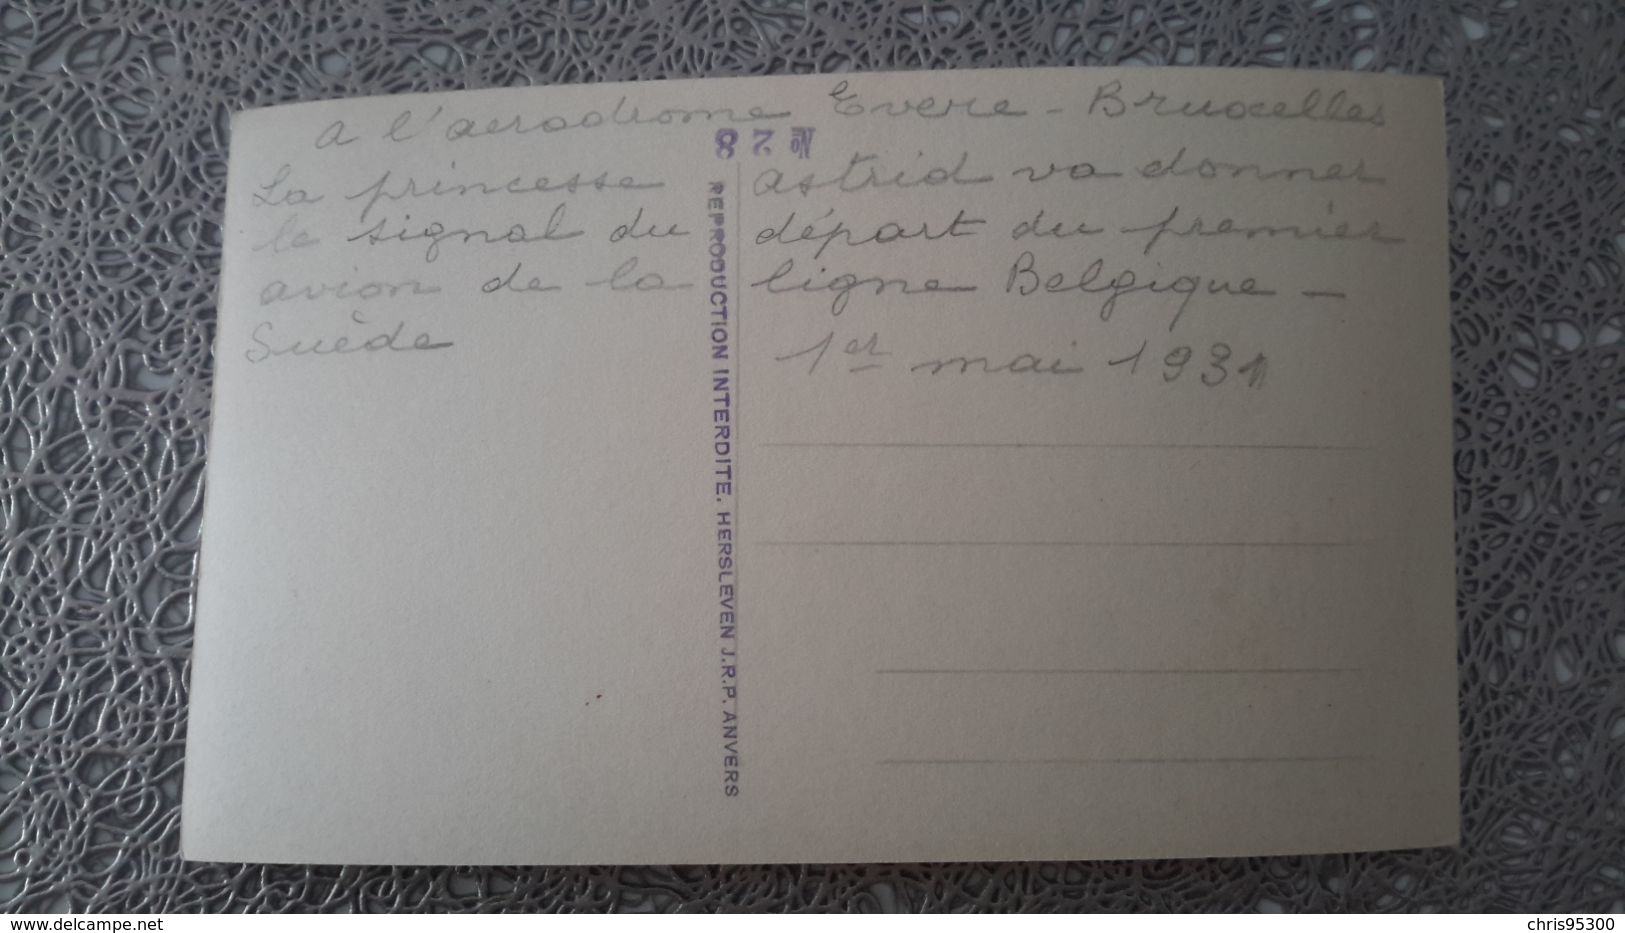 a l'aerodrome Evere - Bruxelles
№ 28
La princesse astrid va donner
le signal du départ du premier
avion de la ligne Belgique -
Suède
1er mai 1931
REPRODUCTION INTERDITE. HERSLEVEN J.R.P. ANVERS
delcampe.net
chris95300